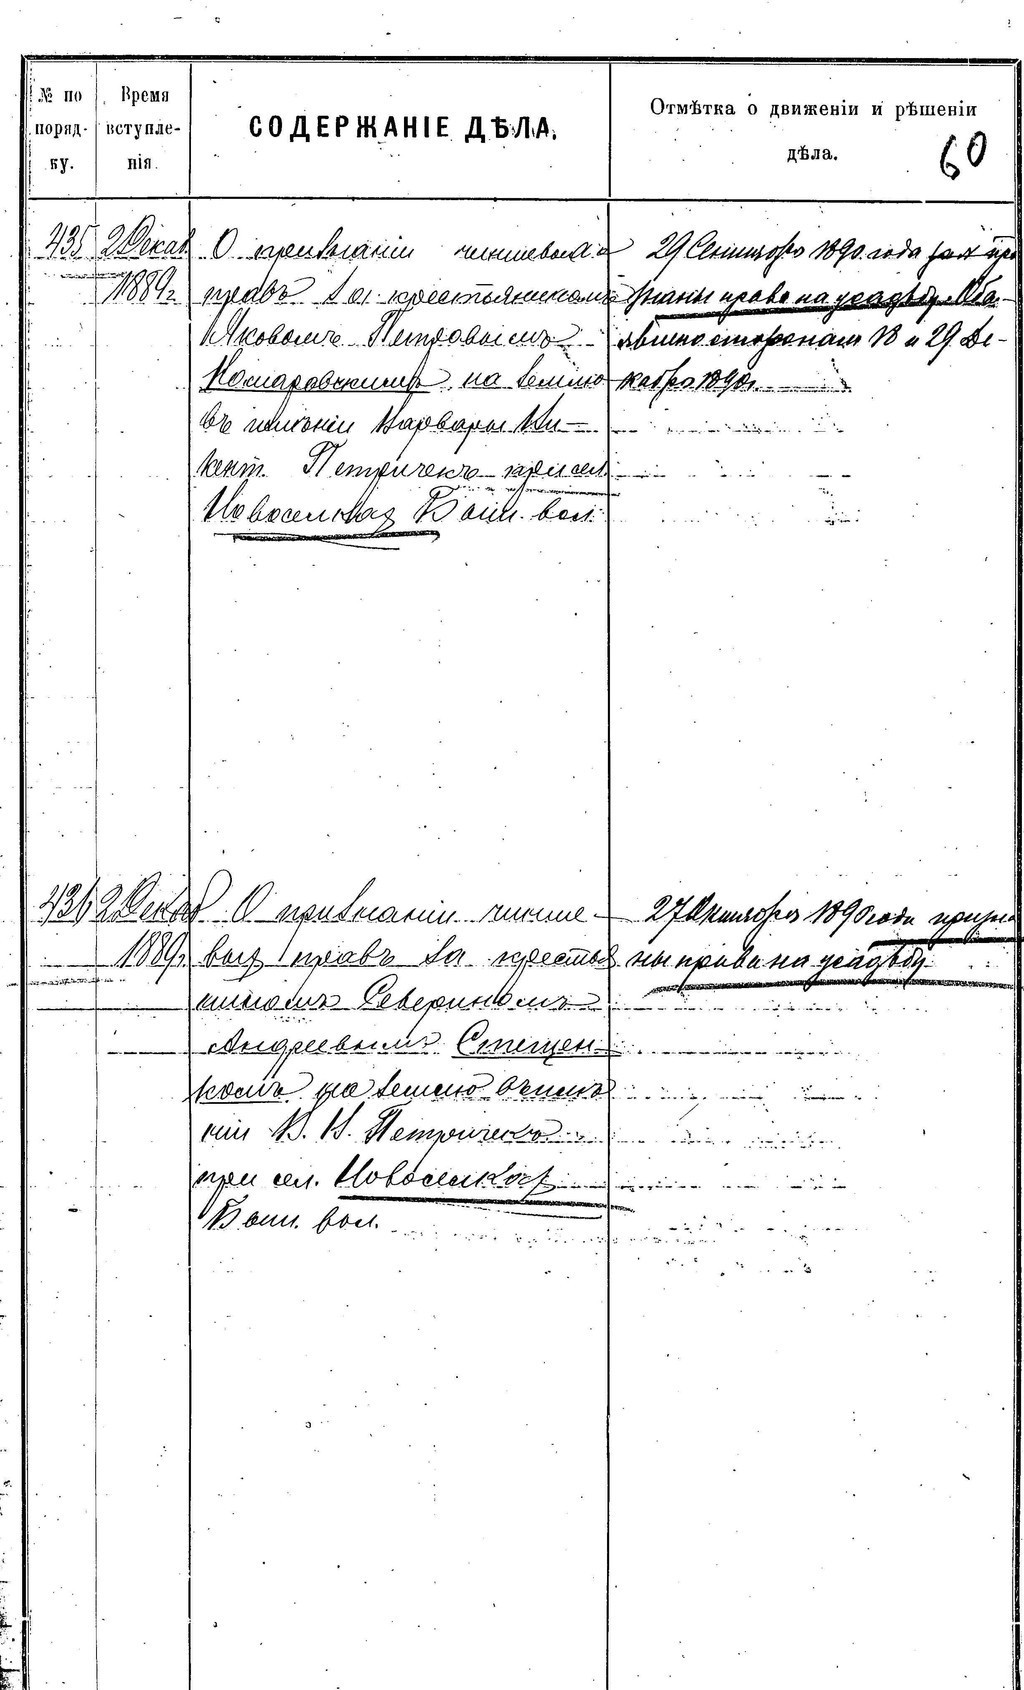 № по поряд-ку.
Время вступле-нія.
СОДЕРЖАНІЕ ДѢЛА.
Отмѣтка о движеніи и рѣшеніи
дѣла.
60
435 2 Декаб
1889 г.
О признаніи чиншевыхъ
правъ за крестьяниномъ
Яковомъ Петровымъ
Комаровскимъ на землю
въ имѣніи Варвары Ви-
кент. Петричекъ при сел.
Новоселкахъ Бош. вол.
29 Сентября 1890 года при
знаны права на усадьбу. Объ
явлено сторонамъ 18 и 29 Де-
кабря 1890 г.
436 2 Декаб
1889 г.
О признаніи чинше-
выхъ правъ за крестья
ниномъ Севериномъ
Андреевымъ Стецен-
комъ на землю въ имѣ
ніи В. В. Петричекъ
при сел. Новоселкахъ
Бош. вол.
27 Октября 1890 года призна
ны права на усадьбу.